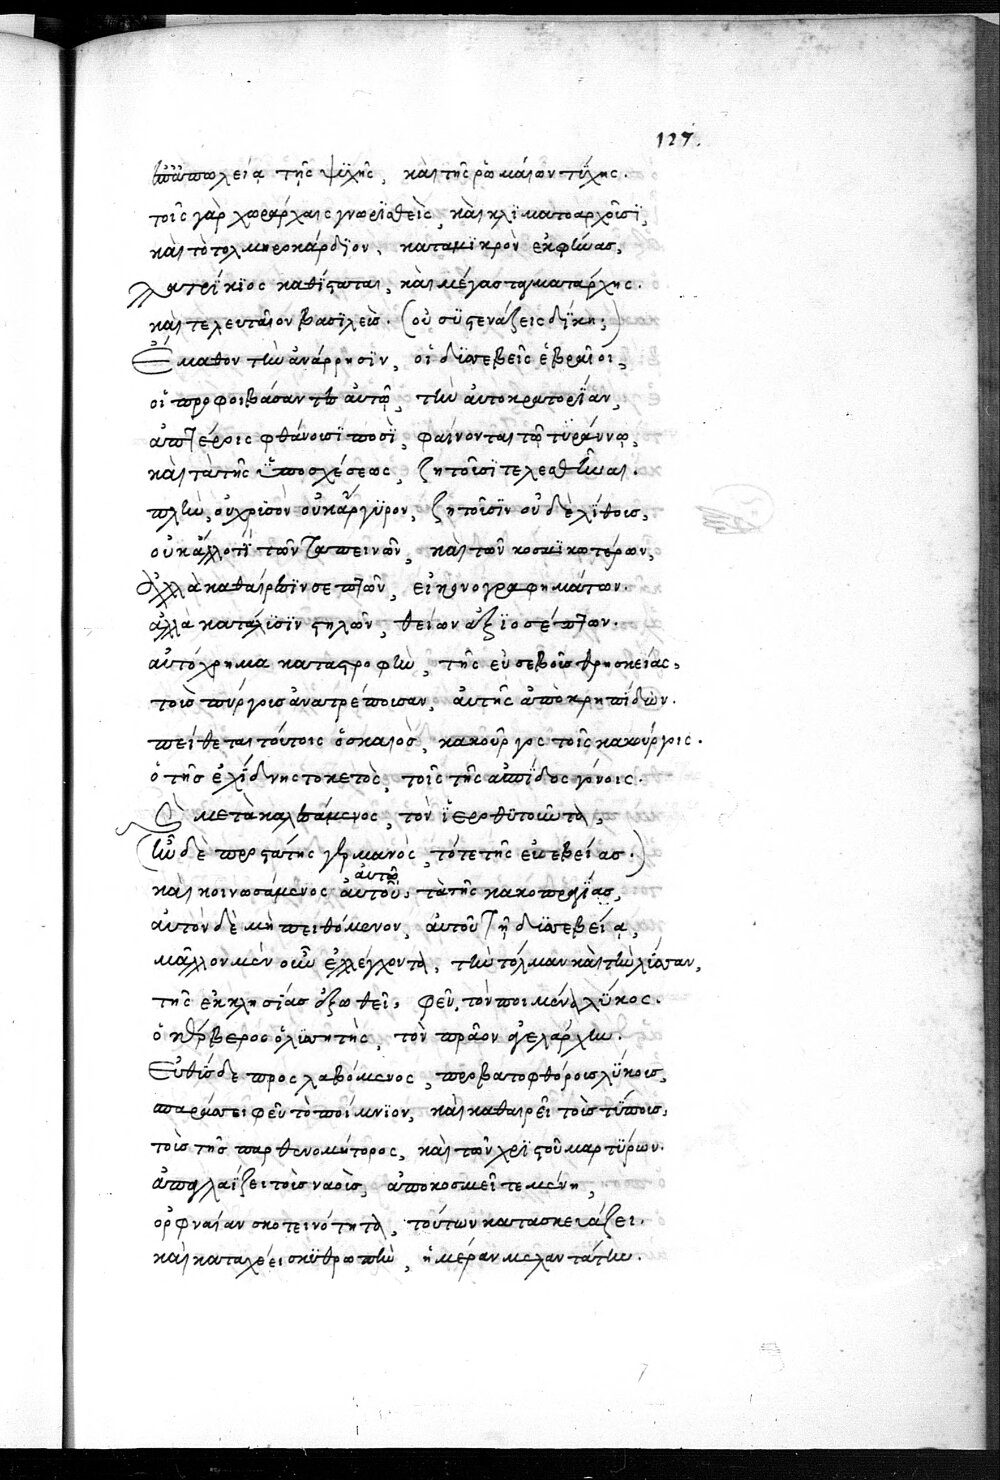 127.
ἐπ' ἀπωλείᾳ τῆς ψυχῆς, καὶ τῆς ῥωμαίων τύχης.
τοῖς γὰρ χωράρχαις γνωρισθεὶς, καὶ κλιματοαρχοῦσι,
καὶ τὸ τολμηροκάρδιον, κατὰ μικρὸν ἐκφήνας,
πατρίκιος καθίσταται, καὶ μέγας ταγματάρχης.
καὶ τελευταῖον βασιλεὺς. (οὐ συστενάξεις δίκη;)
Ἔμαθον τὴν ἀνάρρησιν, οἱ δυσσεβεῖς ἑβραῖοι,
οἱ προφοιβάσαντες αὐτῷ, τὴν αὐτοκρατορίαν,
ἀπτέροις φθάνουσι ποσὶ, φαίνονται τῷ τυράννῳ,
καὶ τὰ τῆς ὑποσχέσεως, ζητοῦσι τελεσθῆναι.
πλὴν, οὐ χρυσὸν οὐκ ἄργυρον, ζητοῦσιν οὐδὲ λίθους,
οὐκ ἄλλο τι τῶν ταπεινῶν, καὶ τῶν κοσμικωτέρων,
ἀλλὰ καθαίρεσιν σεπτῶν, εἰκονογραφημάτων.
ἀλλὰ κατάλυσιν στηλῶν, θείων ἀξιοσέπτων.
αὐτόχρημα καταστροφὴν, τῆς εὐσεβοῦς θρησκείας,
τοὺς πύργους ἀνατρέπουσαν, αὐτῆς ἀπὸ κρηπίδων.
πείθεται τούτοις ὁ σκαιὸς, κακοῦργος τοῖς κακούργοις.
ὁ τῆς ἐχίδνης τοκετὸς, τοῖς τῆς ἀσπίδος γόνοις.
Ὃ μετακαλεσάμενος, τὸν ἱεροθύτην τὸν,
(ἦν δὲ προστάτης γερμανὸς, τότε τῆς εὐσεβείας.)
καὶ κοινωσάμενος αὐτοῦ, τὰ τῆς κακοπραγίας,
αὐτῷ
αὐτὸν δὲ μὴ πειθόμενον, αὐτοῦ τῇ δυσσεβείᾳ,
μᾶλλον μὲν οὖν ἐλέγχοντα, τὴν τόλμαν καὶ τὴν λύσσαν,
τῆς ἐκκλησίας ἐξωθεῖ, φεῦ, τὸν ποιμένα λύκος.
ὁ κέρβερος ὁ λυσσητὴς, τὸν πρᾶον ἀγελάρχην.
Εὐθὺς δὲ προσλαβόμενος, προβατοφθόρους λύκους,
σπαράσσει φεῦ τὸ ποίμνιον, καὶ καθαιρεῖ τοὺς τύπους,
τοὺς τῆς παρθενομήτορος, καὶ τῶν χριστοῦ μαρτύρων.
ἀπαγλαΐζει τοὺς ναοὺς, ἀποκοσμεῖ τεμένη,
ὀρφναίαν σκοτεινότητα, τούτων κατασκευάζει.
καὶ καταχέει σκυθρωπὴν, ἡμέραν μελαντάτην.